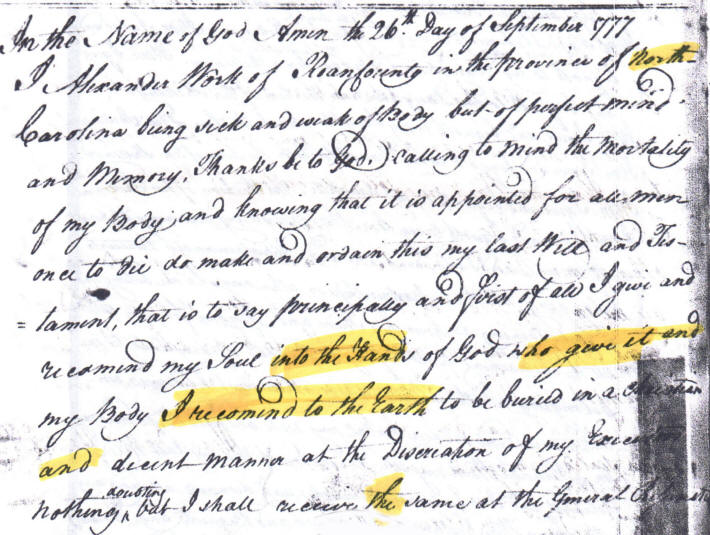 In the Name of God Amen the 26th Day of September 777
I Alexander Work of Roan County in the province of North
Carolina being sick and weak of Body but of perfect mind
and Memory, Thanks be to God. Calling to mind the Mortality
of my Body and knowing that it is appointed for all men
once to die do make and ordain this my last Will and Tes-
= tament, that is to say principally and first of all I give and
recomind my Soul into the Hands of God who give it and
my Body I recomind to the Earth to be buried in a
and decent manner at the Discreation of my
nothing doubting but I shall receive the same at the General